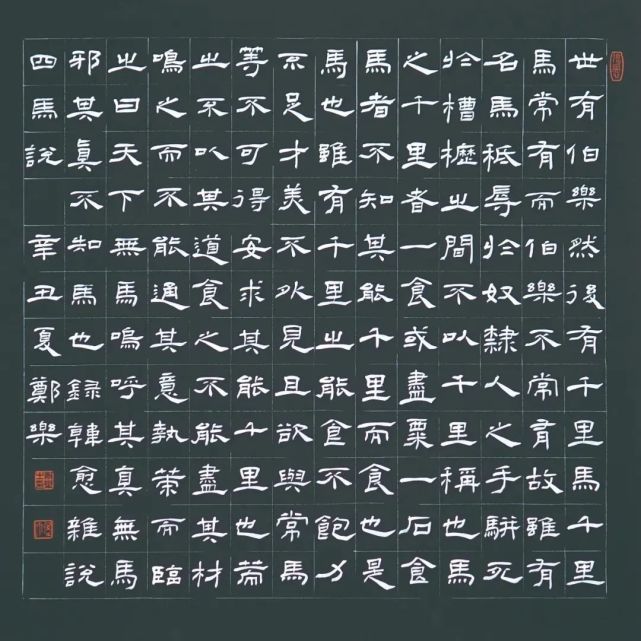 世有伯樂然後有千里馬千里
馬常有而伯樂不常有故雖有
名馬秖辱於奴隸人之手駢死
於槽櫪之間不以千里稱也馬
之千里者一食或盡粟一石食
馬者不知其能千里而食也是
馬也雖有千里之能食不飽力
不足才美不外見且欲與常馬
等不可得安求其能千里也策
之不以其道食之不能盡其材
鳴之而不能通其意執策而臨
之曰天下無馬嗚呼其真無馬
邪其眞不知馬也錄韓愈雜說
四馬說 辛丑夏鄭樂